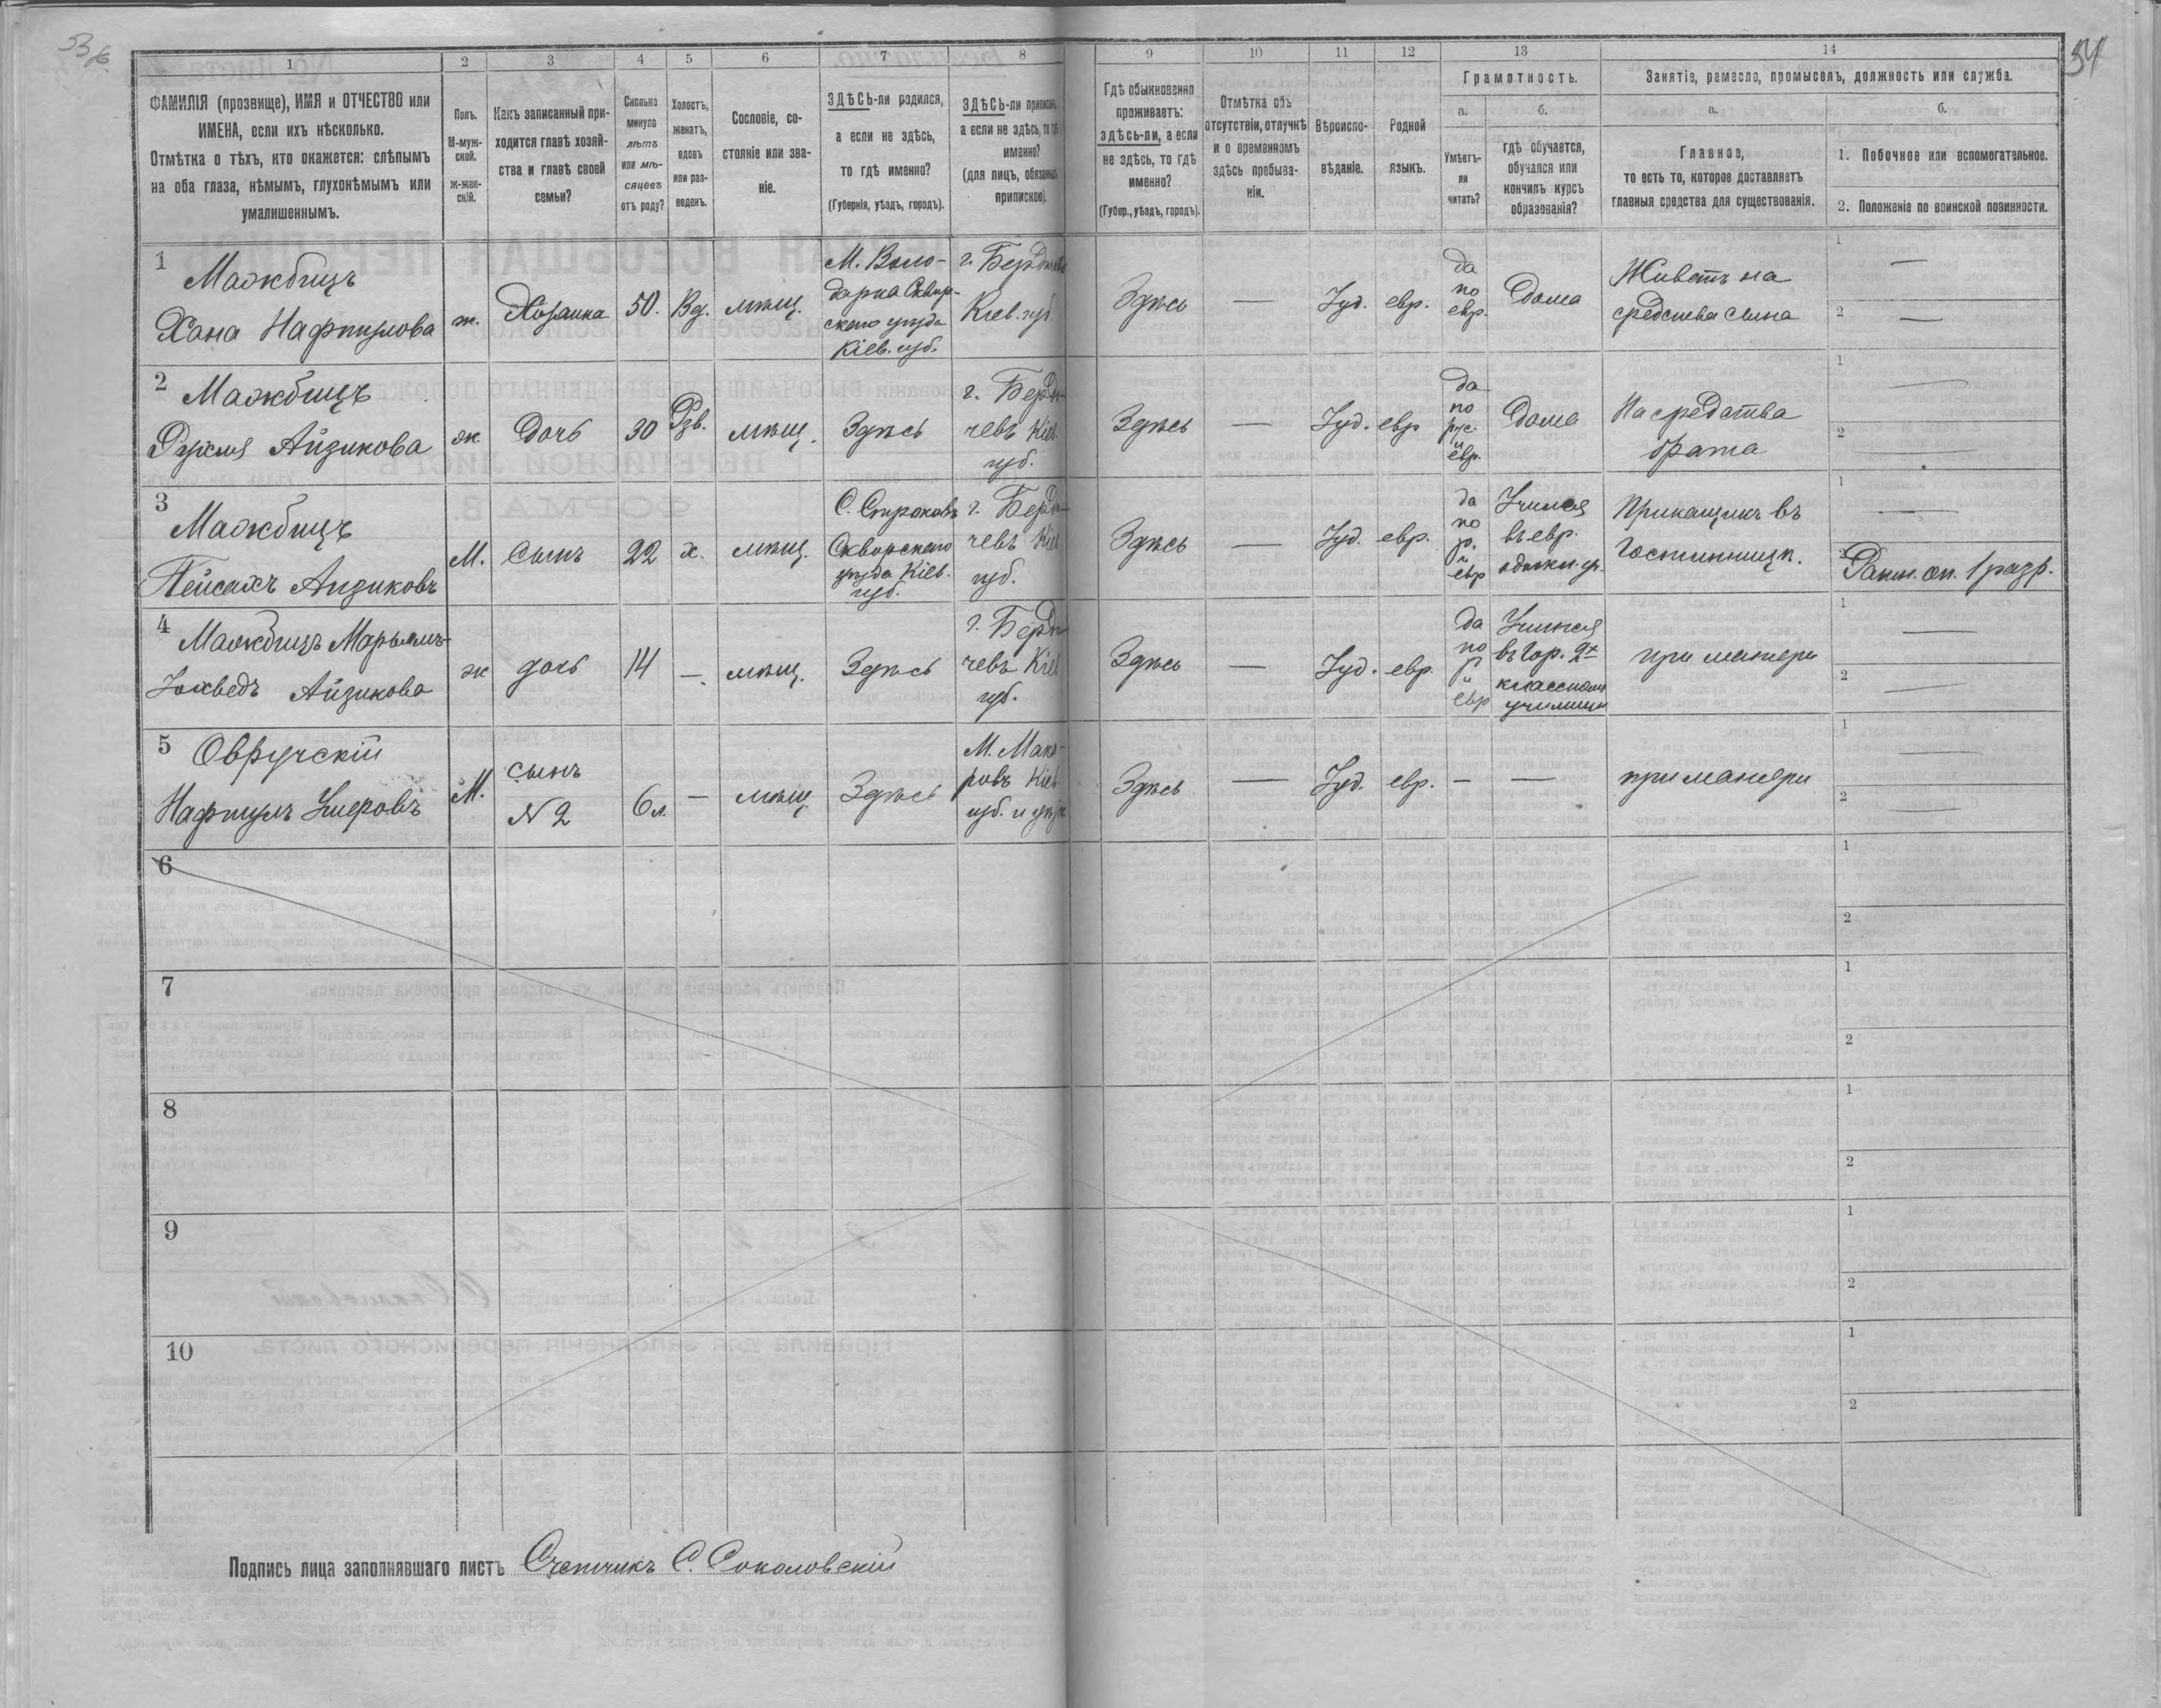 53
54
1
2
3
4
5
6
7
8
9
10
11
12
13
14
ФАМИЛІЯ (прозвище), ИМЯ и ОТЧЕСТВО или
ИМЕНА, если ихъ нѣсколько.
Отмѣтка о тѣхъ, кто окажется: слѣпымъ
на оба глаза, нѣмымъ, глухонѣмымъ или
умалишеннымъ.
Полъ.
М-муж-
ской.
ж-жен-
скій.
Какъ записанный при-
ходится главѣ хозяй-
ства и главѣ своей
семьи?
Сколько
минуло
лѣтъ
или мѣ-
сяцевъ
отъ роду?
Холостъ,
женатъ,
вдовъ
или раз-
веденъ.
Сословіе, со-
стояніе или зва-
ніе.
ЗДѢСЬ-ли родился,
а если не здѣсь,
то гдѣ именно?
(Губернія, уѣздъ, городъ).
ЗДѢСЬ-ли приписанъ,
а если не здѣсь, то гдѣ
именно?
(для лицъ, обязанныхъ
припискою).
Гдѣ обыкновенно
проживаетъ:
здѣсь-ли, а если
не здѣсь, то гдѣ
именно?
(Губер., уѣздъ, городъ).
Отмѣтка объ
отсутствіи, отлучкѣ
и о временномъ
здѣсь пребыва-
ніи.
Вѣроиспо-
вѣданіе.
Родной
языкъ.
Грамотность.
а.
Умѣетъ-
ли
читать?
б.
гдѣ обучается,
обучался или
кончилъ курсъ
образованія?
Занятіе, ремесло, промыселъ, должность или служба.
а.
Главное,
то есть то, которое доставляетъ
главныя средства для существованія.
б.
1. Побочное или вспомогательное.
2. Положеніе по воинской повинности.
1
Мажбицъ
Хана Нафтулова
ж.
Хозяйка
50.
Вд.
мѣщ.
М. Воло-
дарка Сквир-
скаго уѣзда
Кіев. губ.
г. Бердичевъ
Кіев. губ.
Здѣсь
—
Іуд.
евр.
да
по
евр.
Дома
Живетъ на
средства сына
1
—
2
—
2
Мажбицъ
Рухля Айзикова
ж
Дочь
30
Рзв.
мѣщ.
Здѣсь
г. Берди-
чевъ Кіев.
губ.
Здѣсь
—
Іуд.
евр
да
по
рус.
и
евр.
Дома
На средства
брата
1
—
2
—
3
Мажбицъ
Пейсахъ Айзиковъ
М.
Сынъ
22
х.
мѣщ.
Сквирскаго
уѣзда Кіев.
губ.
г. Берди-
чевъ Кіев
губ.
Здѣсь
—
Іуд.
евр.
да
по
р.
и
евр
Учился
въ евр.
Прикащикъ въ
Гостинницѣ.
1
—
2
Ратн. оп. 1 разр.
4
Мажбицъ Марьямъ-
Іохведъ Айзикова
ж
дочь
14
—
мѣщ.
Здѣсь
г. Берди-
чевъ Кіев
губ.
Здѣсь
—
Іуд.
евр.
да
по
р
и
евр
Учился
въ Гор. 2х
классномъ
училищѣ
при матери
1
—
2
—
5
Овручскій
Нафтулъ Умеровъ
М.
сынъ
N 2
6 л.
—
мѣщ
Здѣсь
М. Мака-
ровъ Кіев
губ. и уѣзда
Здѣсь
—
Іуд.
евр.
—
—
при матери
1
—
2
—
6
1
2
7
1
2
8
1
2
9
1
2
10
1
2
Подпись лица заполнявшаго листъ Счетчикъ С. Соколовскій